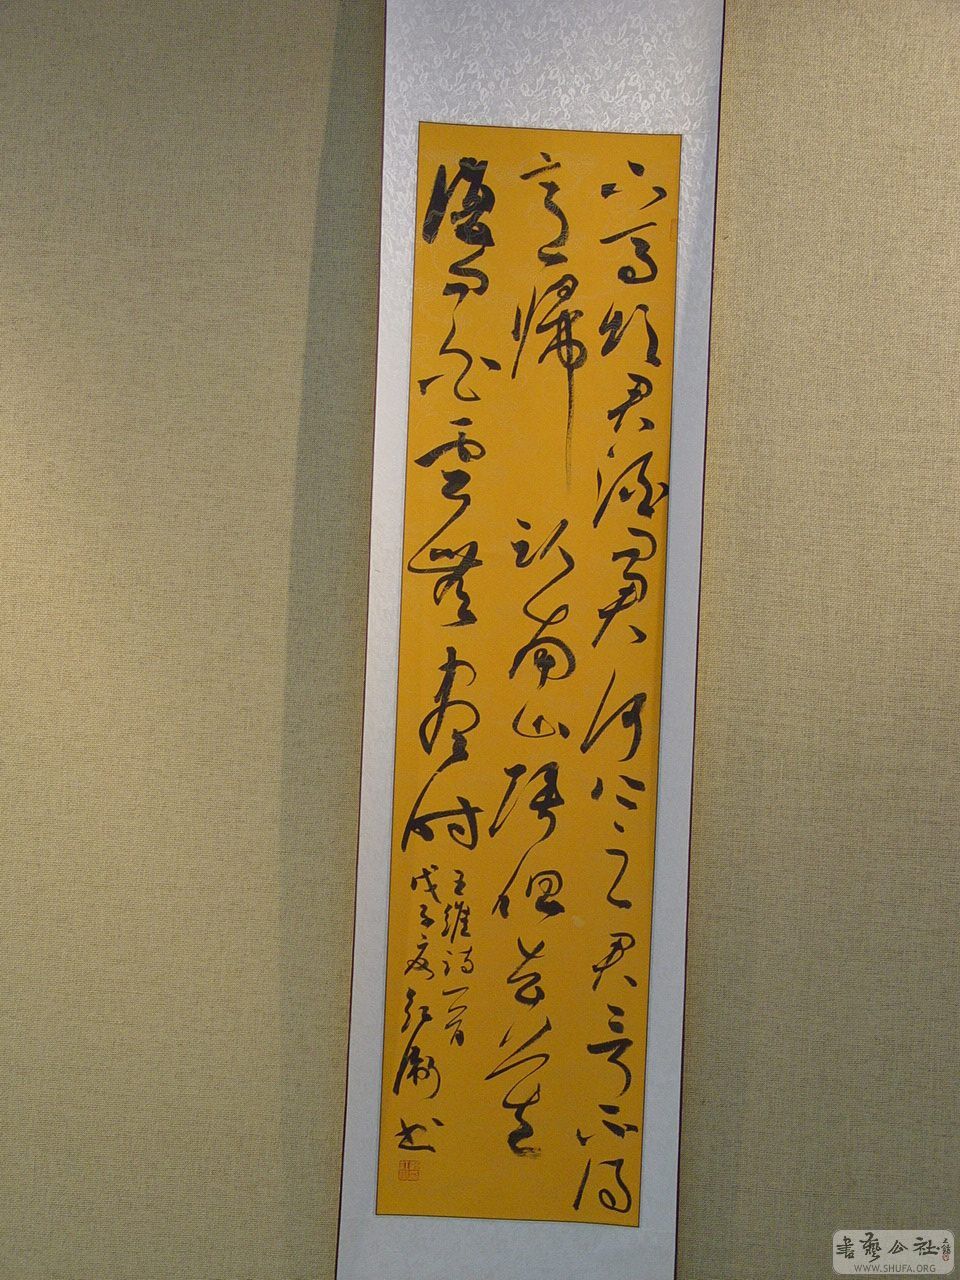 下馬飲君酒問君何所之君言不得
意歸臥南山陲但去莫
復問白雲無盡時
王維詩一首
戊子夏紅衛书
書藝公社
WWW.SHUFA.ORG